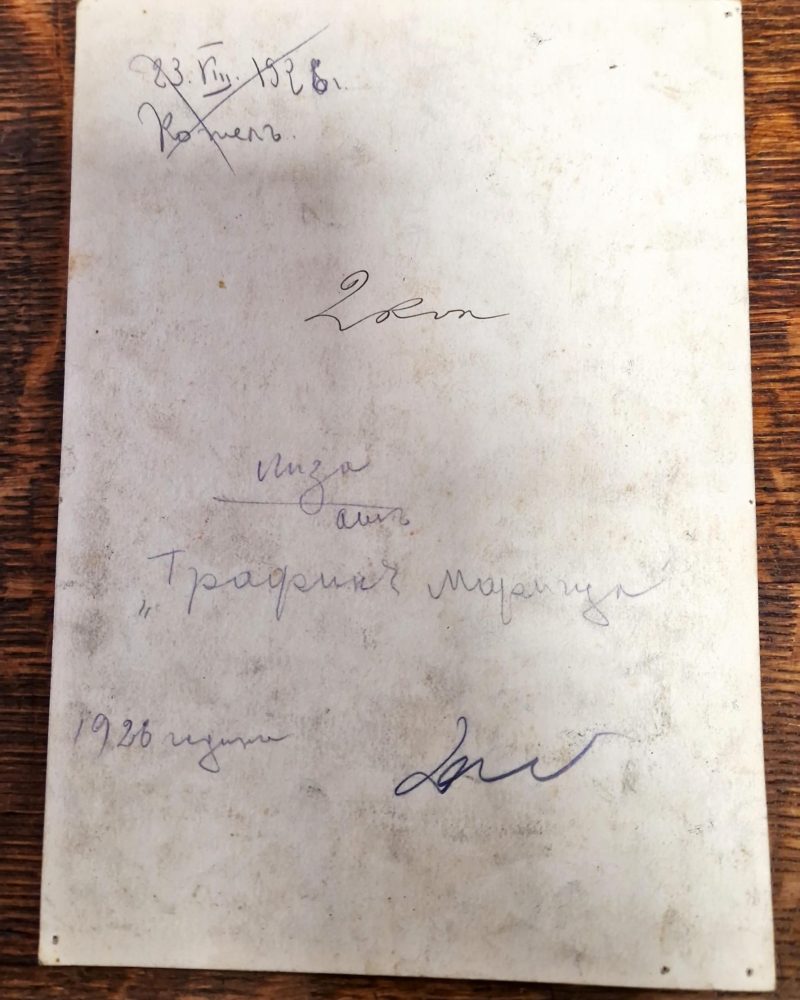 23. VIII. 1926 г.
Котелъ.
2 коп
Лиза
отъ
„Графинѣ Марица"
1926 година